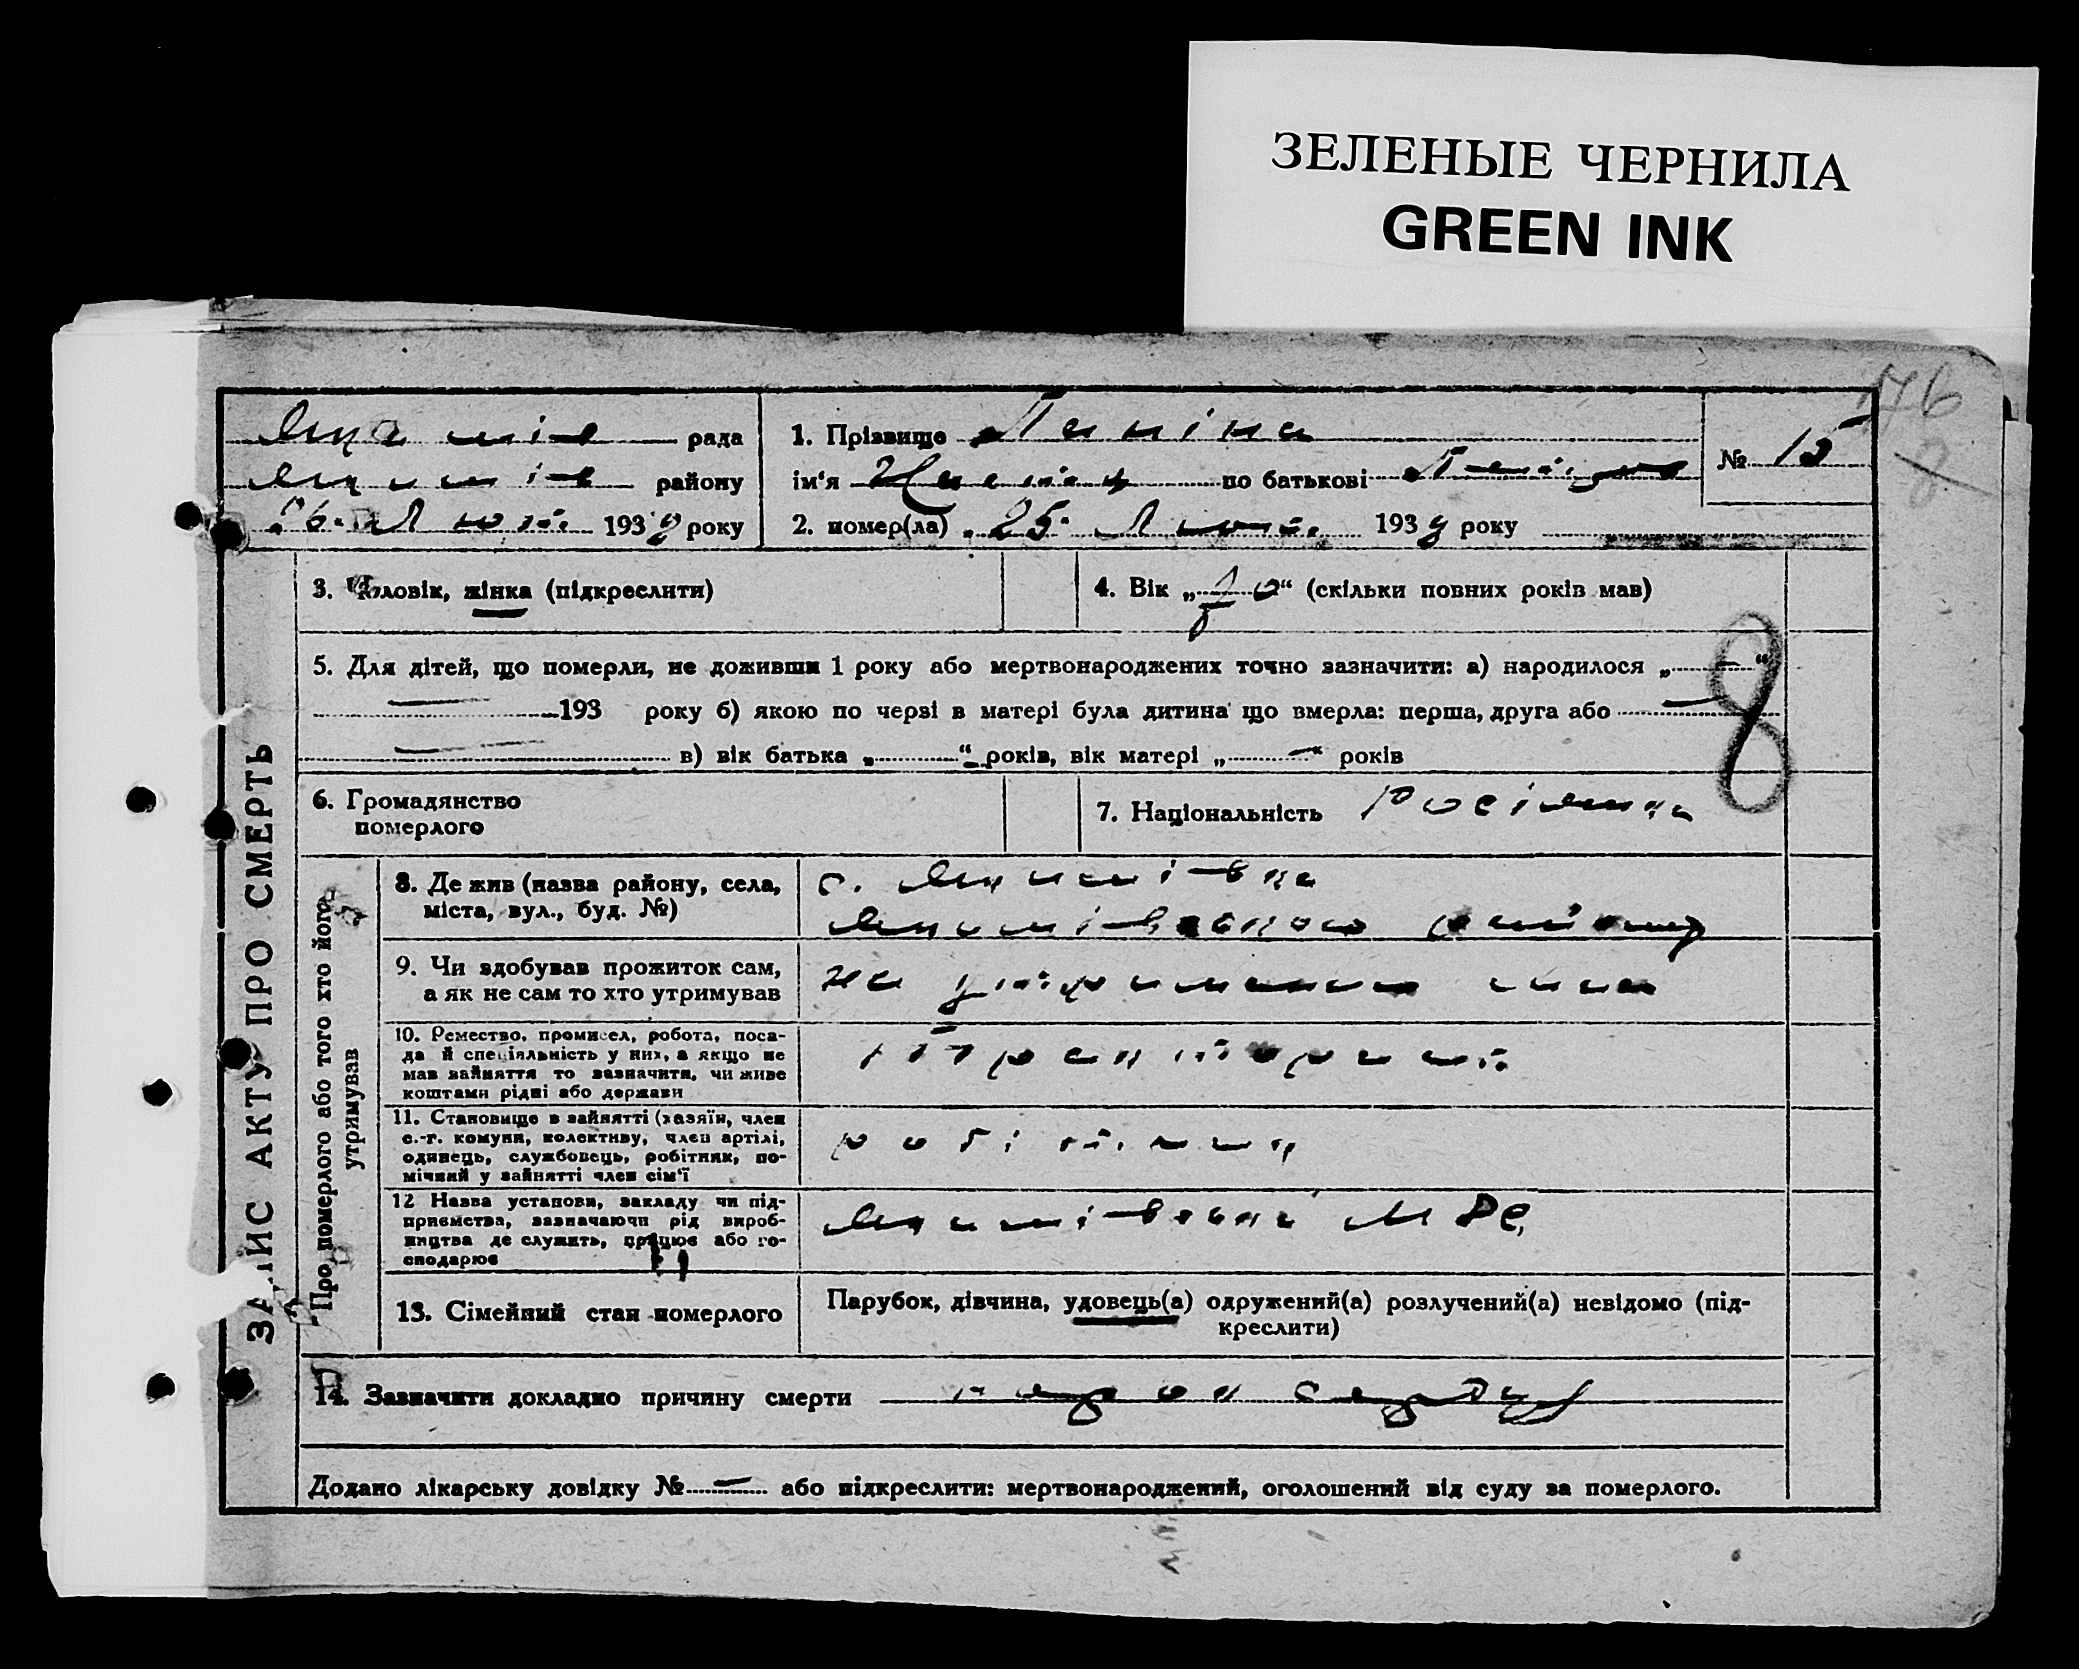 ЗЕЛЕНЫЕ ЧЕРНИЛА
GREEN INK
176
рада
району
193 року
1. Прізвище
ім'я по батькові
2. помер(ла) 25. 193 року
№ 15
ЗАПИС АКТУ ПРО СМЕРТЬ
3. Чоловік, жінка (підкреслити)
4. Вік „ 70 “ (скільки повних років мав)
5. Для дітей, що померли, не доживши 1 року або мертвонароджених точно зазначити: а) народилося „ — “
— 193 року б) якою по черзі в матері була дитина що вмерла: перша, друга або —
— в) вік батька „ “ років, вік матері „ — “ років
8
6. Громадянство
померлого
7. Національність росіянка
Про померлого або того хто його
утримував
8. Де жив (назва району, села,
міста, вул., буд. №)
с.
району
9. Чи здобував прожиток сам,
а як не сам то хто утримував
на утриманні сина
10. Ремество, промисел, робота, поса-
да й спеціяльність у них, а якщо не
мав зайняття то зазначити, чи живе
коштами рідні або держави
тракторист
11. Становище в зайнятті (хазяїн, член
с.-г. комуни, колективу, член артілі,
одинець, службовець, робітник, по-
мічний у зайнятті член сім'ї
робітник
12 Назва установи, закладу чи під-
приємства, зазначаючи рід вироб-
ництва де служить, працює або го-
сподарює
МТС
13. Сімейний стан померлого
Парубок, дівчина, удовець(а) одружений(а) розлучений(а) невідомо (під-
креслити)
14. Зазначити докладно причину смерти порок серця
Додано лікарську довідку № — або підкреслити: мертвонароджений, оголошений від суду за померлого.